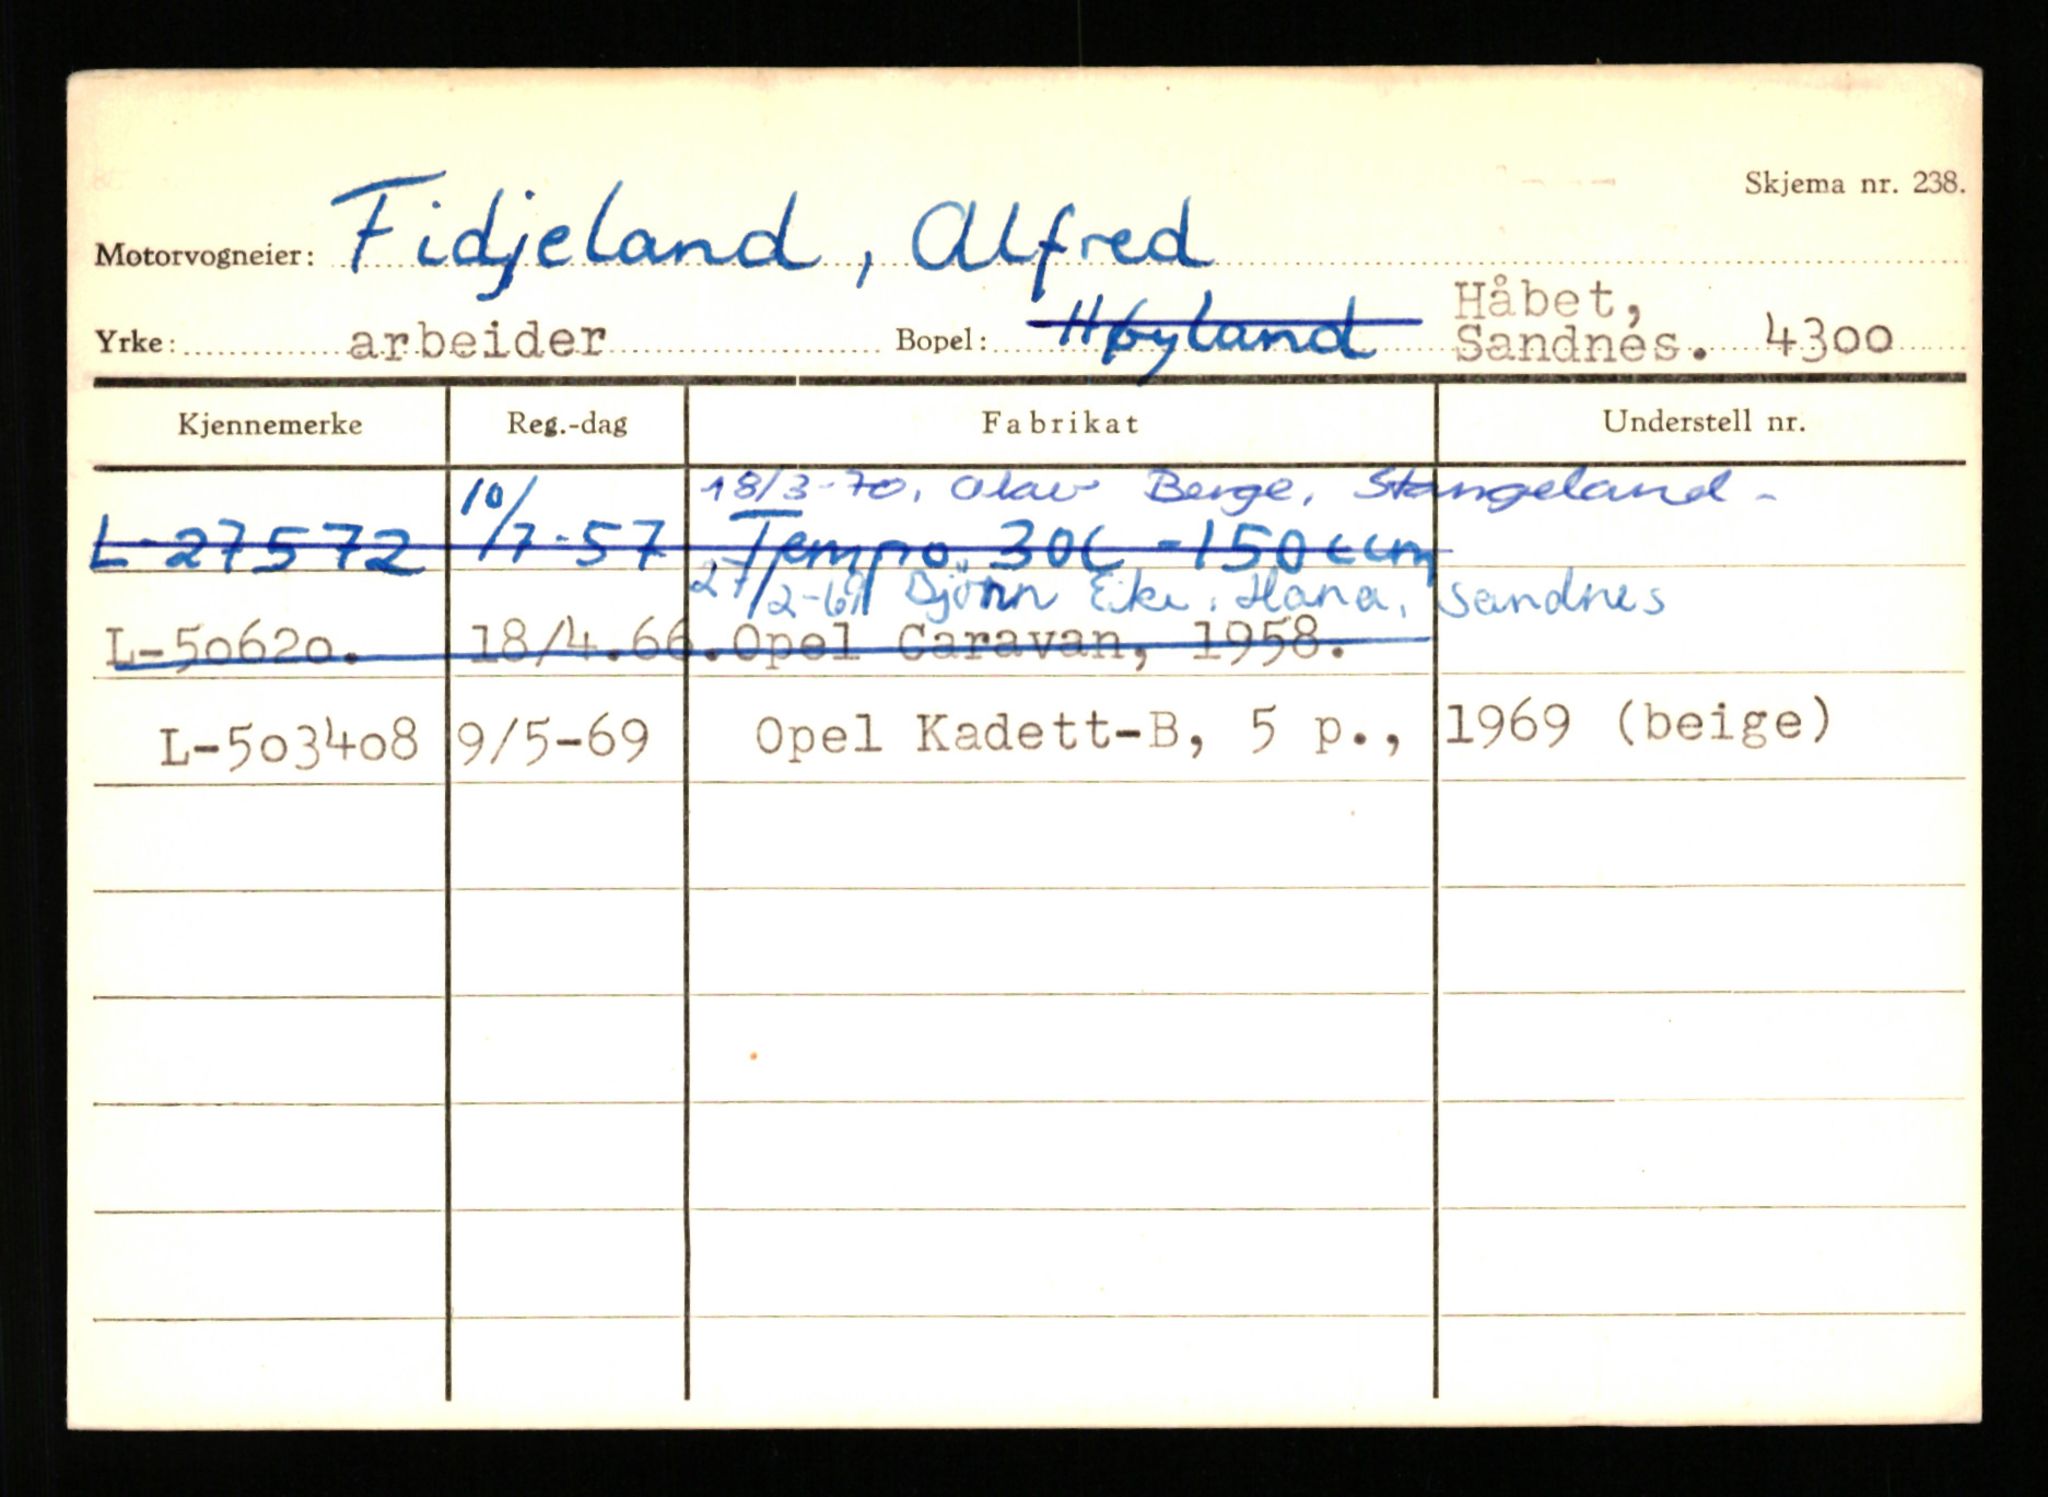 Skjema nr. 238.
Motorvogneier: Fidjeland, Alfred
Yrke: arbeider Bopel: Høyland Håbet,
Sandnes. 4300
Kjennemerke Reg.-dag Fabrikat Understell nr.
18/3-70, Olav Berge, Stangeland -
L-27572 10/7-57 Tempo 30C -150ccm
27/2-69 Björn Eike, Hana, Sandnes
L-50620. 18/4.66. Opel Caravan, 1958.
L-503408 9/5-69 Opel Kadett-B, 5 p., 1969 (beige)